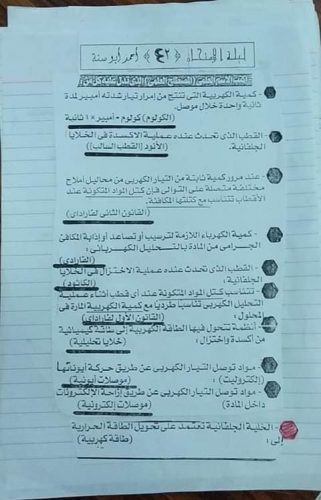 ليلة الامتحان ﴿٤٢﴾ أحمد أبو سنة
- كمية الكهربية التى تنتج من إمرار تيار شدته أمبير لمدة
ثانية واحدة خلال موصل.
(الكولوم) كولوم = أمبير × ١ ثانية
- القطب الذى تحدث عنده عملية الاكسدة فى الخلايا
الجلفانية. (الأنود [القطب السالب])
- عند مرور كمية ثابتة من التيار الكهربى من محاليل أملاح
مختلفة متصلة على التوالى فإن كتل المواد المتكونة عند
الأقطاب تتناسب مع كتلتها المكافئة.
(القانون الثانى لفاراداى)
- كمية الكهرباء اللازمة لترسيب أو تصاعد أو إذابة المكافئ
الجرامى من المادة بالتحليل الكهربائى:
(الفاراداى)
- القطب الذى تحدث عنده عملية الاختزال فى الخلايا
الجلفانية: (الكاثود)
- تتناسب كتل المواد المتكونة عند أى قطب أثناء عملية
التحليل الكهربى تناسباً طردياً مع كمية الكهربية المارة فى
المحلول: (القانون الأول لفاراداى)
- أنظمة تتحول فيها الطاقة الكهربية إلى طاقة كيميائية
من أكسدة واختزال: (خلايا تحليلية)
- مواد توصل التيار الكهربى عن طريق حركة أيوناتها
(إلكتروليت): (موصلات أيونية)
- مواد توصل التيار الكهربى عن طريق إزاحة الإلكترونات
داخل المادة) (موصلات إلكترونية)
- الخلية الجلفانية تعتمد على تحويل الطاقة الحرارية
إلى: (طاقة كهربية)